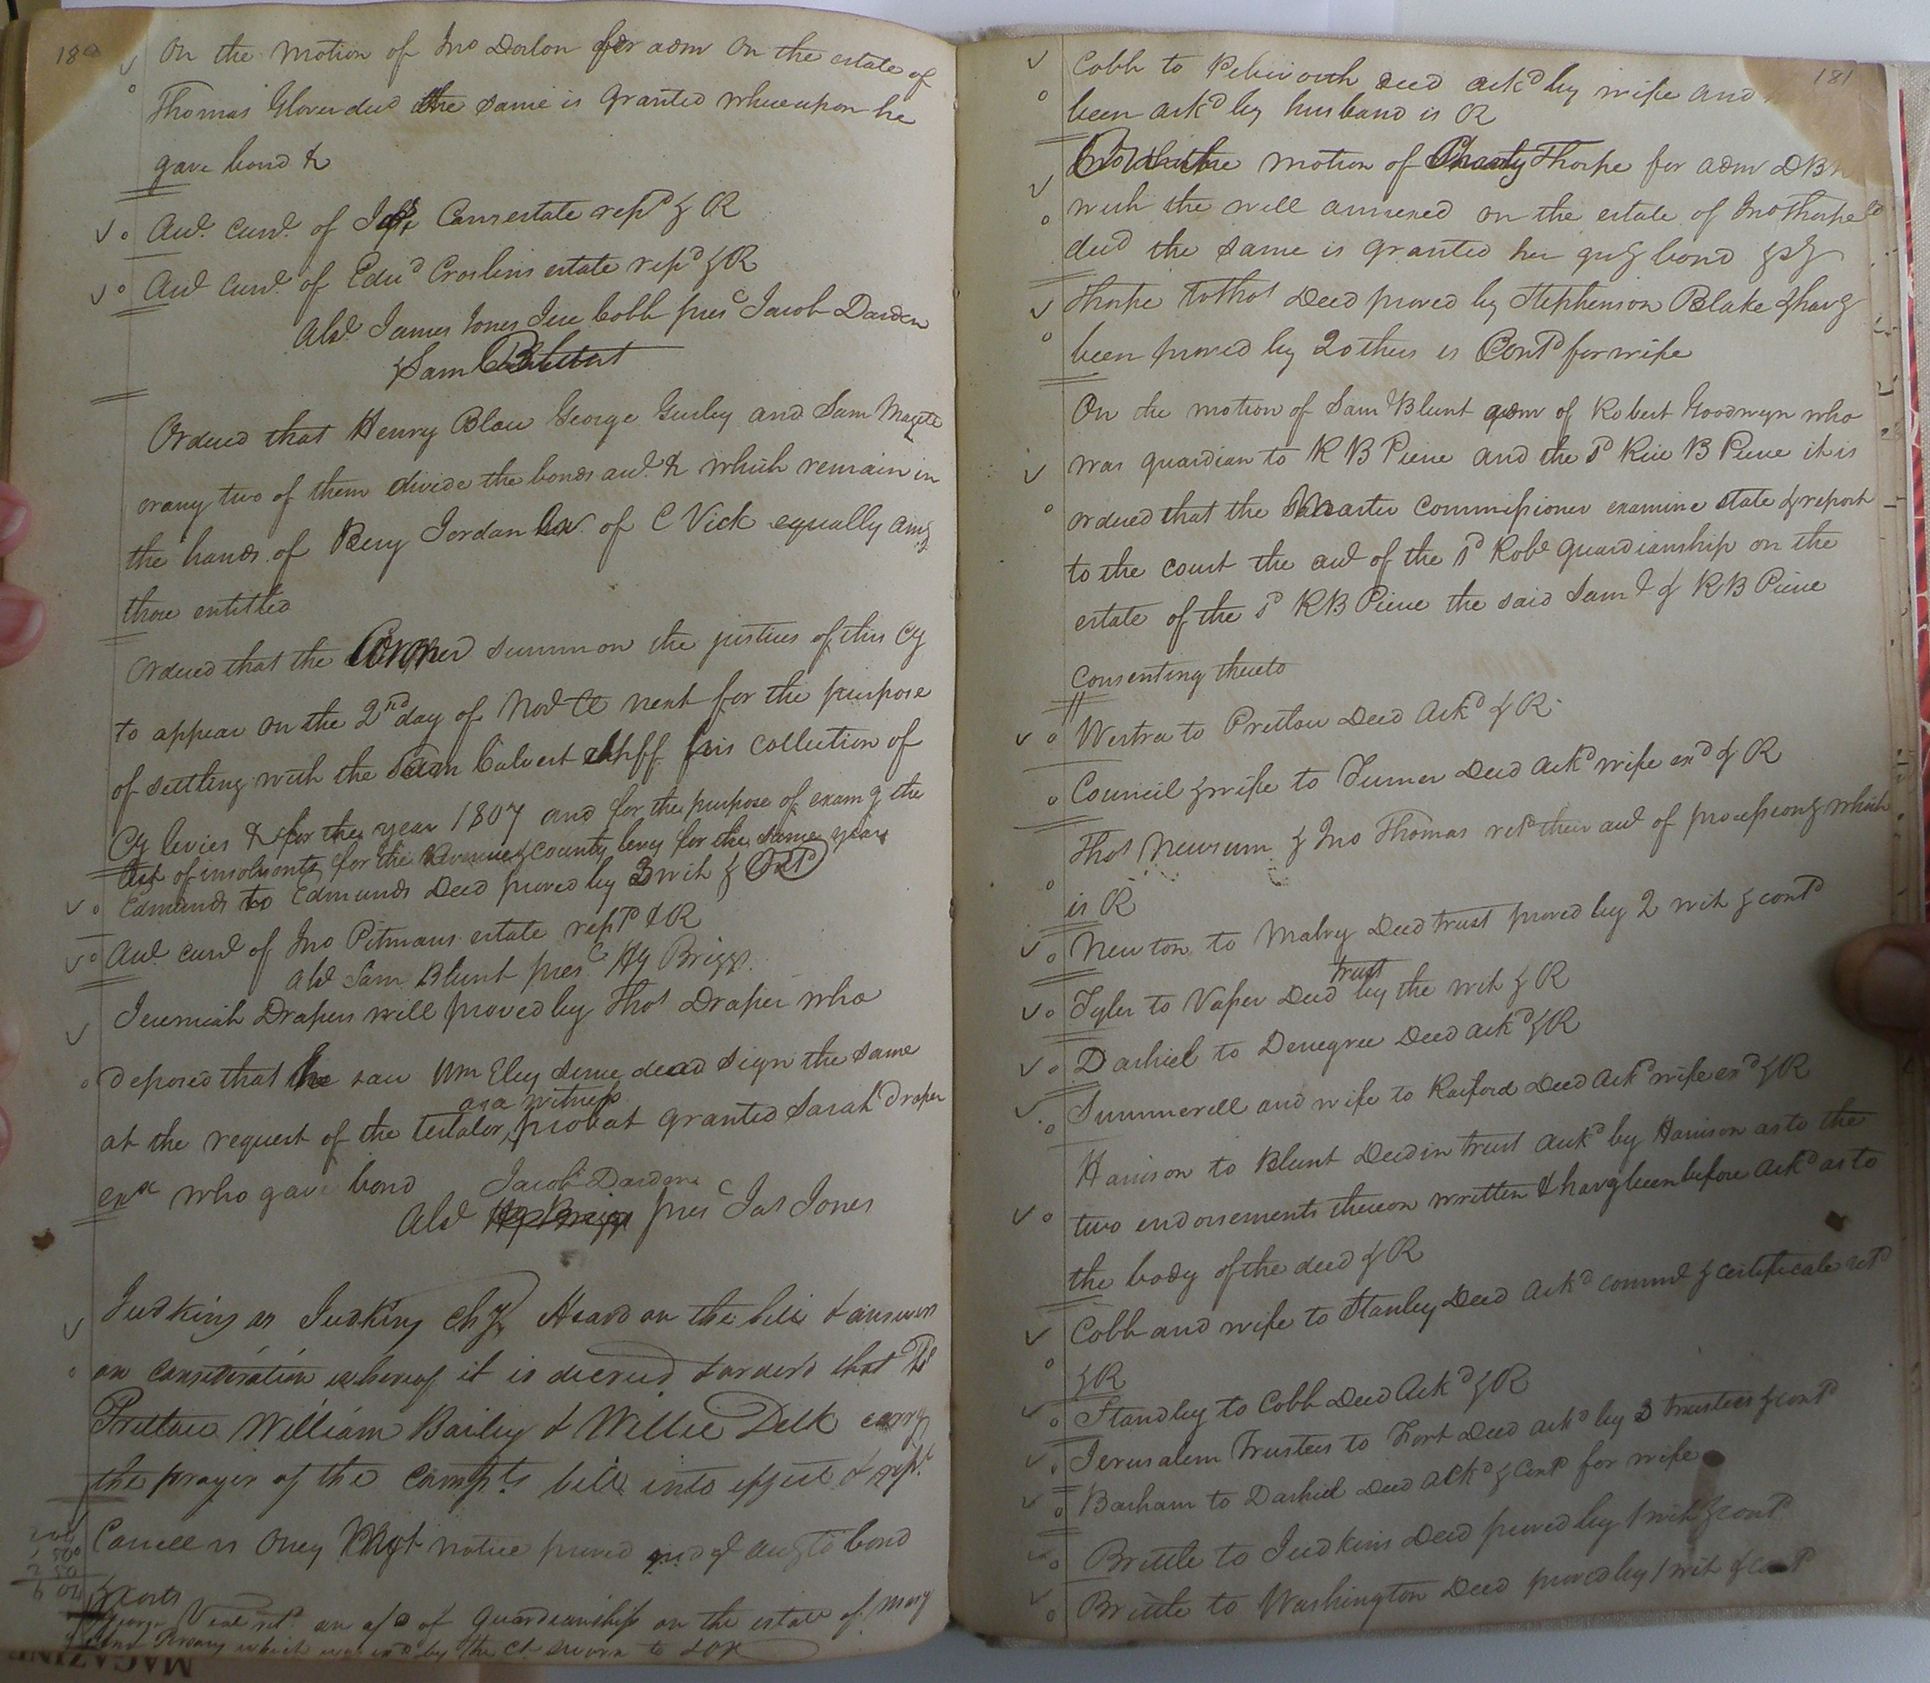 180
On the motion of Jno Dorlon for adm on the estate of
Thomas Glover decd the same is granted whereupon he
gave bond &
Aud. Curt. of Cars estate repd & R
Aud Curt. of Edwd Croslins estate repd & R
Abst James Jones Jere Cobb prest Jacob Darden
& Sam
Ordered that Henry Blow George Gurley and Sam Magete
or any two of them divide the bonds aud. & which remain in
the hands of Benj Jordan Ex. of C Vick equally amg
those entitled
Ordered that the Coroner summon the justices of this Cy
to appear on the 2nd day of Nov Ct next for the purpose
of settling with the Sam Calvert shff his collection of
Cy levies & for the year 1807 and for the purpose of examg the
list of insolvents for the Revenue & county levy for the same year
Edmunds to Edmunds Deed proved by 3 wit & Ord
Aud. curt of Jno Pitmans estate repd & R
Abst Sam Blunt prest Hy Briggs.
Jeremiah Drapers will proved by Thos Draper who
deposed that he saw Wm Eley since dead sign the same
as a witness
at the request of the testator, probat granted Sarah Draper
exx who gave bond Jacob Darden
Abst Hy Briggs prest Jas Jones
Judkins vs Judkins Chy Heard on the bill & answers
on consideration whereof it is decreed & orderd that Ts
Pretlow William Bailey & Willie Delk carry
the prayer of the Compts bill into effect & rept.
Carrell vs Oney Mot notice proved judgt accg to bond
& costs
George Veal retd an a/c of guardianship on the estate of Mary
which was exd by the Ct sworn to & OR
MAGAZINE
181
Cobb to deed ackd by wife and
been ackd by husband is R
motion of Charity Thorpe for adm DBN
with the will annexed on the estate of Jno Thorpe
decd the same is granted her gvg bond &
Thorpe to Thos Deed proved by Stephenson Blake & havg
been proved by 2 others is Contd for wife
On the motion of Sam Blunt adm of Robert Goodwyn who
was guardian to R B Pierce and the sd Rice B Pierce it is
ordered that the Master Commissioner examine state & report
to the court the aud of the sd Robt guardianship on the
estate of the sd RB Pierce the said Saml & RB Pierce
consenting thereto
Westra to Pretlow Deed Ackd & R.
Council & wife to Turner Deed Ackd wife exd & R
Thos Newsum & Jno Thomas retd their aud of processiong which
is R
Newton to Mabry Deed trust proved by 2 wit & contd
trust
Tyler to Vasser Deed by the wit & R
Dashiel to Denegree Deed ackd & R
Summerell and wife to Raiford Deed Ackd wife exd & R
Harrison to Blunt Deed in trust ackd by Harrison as to the
two endorsements thereon written & havg been before ackd as to
the body of the deed & R
Cobb and wife to Stanley Deed Ackd commd & certificate retd
& R
Standley to Cobb Deed Ackd & R
Jerusalem Trustees to Fort Deed ackd by 3 trustees & contd
Barham to Dashiel Deed ackd & Contd for wife
Brittle to Judkins Deed proved by 1 wit & contd
Brittle to Washington Deed proved by 1 wit & contd